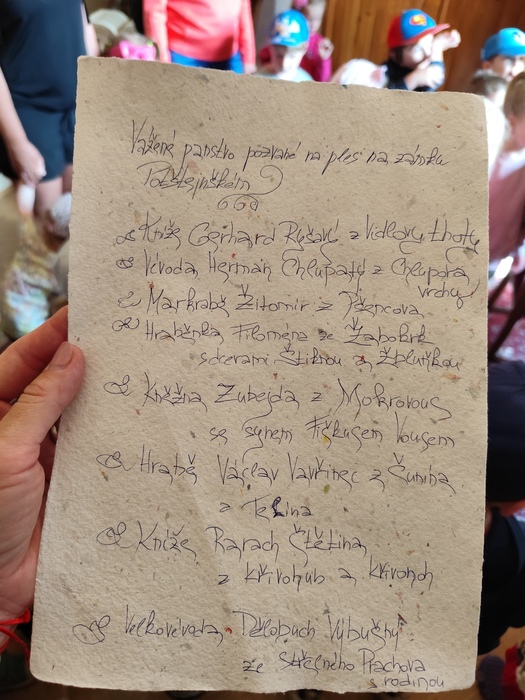 Vážené panstvo pozvané na ples na zámku
Potštejnském
Kníže Gerhard Ryšavý z Vidlovy Lhoty
Vévoda Herman Chlupatý z Chlupára
vrchu
Markrabě Žitomír z Pšencova
Hraběnka Filoména ze Žabokrk
s dcerami Štikou a Žblunkou
Kněžna Zubejda z Mokrovous
se synem Fiškusem Vousem
Hrabě Václav Vavřinec z Čunina
a Telina
Kníže Rarach Štětina
z Křivohub a Křivonoh
Velkovévoda Dělobuch Výbušný
ze Střelného Prachova
s rodinou